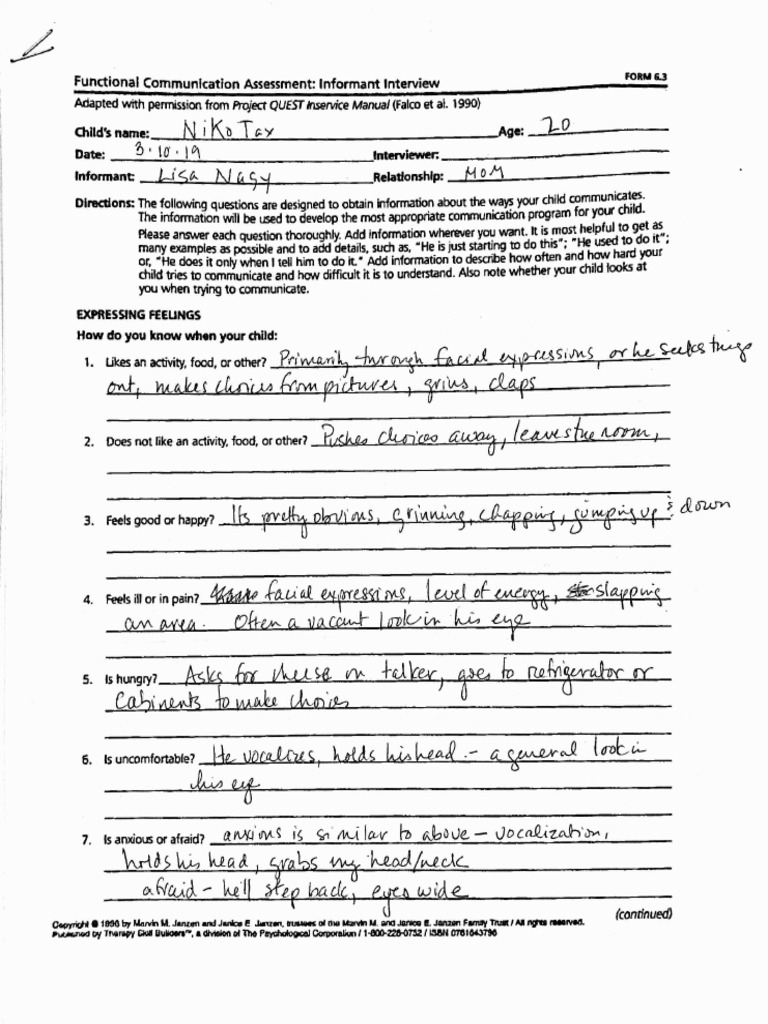 FORM 6.3
Functional Communication Assessment: Informant Interview
Adapted with permission from Project QUEST Inservice Manual (Falco et al. 1990)
Child's name: Niko Tax Age: 20
Date: 3.10.19 Interviewer:
Informant: Lisa Nagy Relationship: MOM
Directions: The following questions are designed to obtain information about the ways your child communicates.
The information will be used to develop the most appropriate communication program for your child.
Please answer each question thoroughly. Add information wherever you want. It is most helpful to get as
many examples as possible and to add details, such as, "He is just starting to do this"; "He used to do it";
or, "He does it only when I tell him to do it." Add information to describe how often and how hard your
child tries to communicate and how difficult it is to understand. Also note whether your child looks at
you when trying to communicate.
EXPRESSING FEELINGS
How do you know when your child:
1. Likes an activity, food, or other? Primarily through facial expressions, or he seeks things
out, makes choices from pictures, grins, claps
2. Does not like an activity, food, or other? Pushes choices away, leaves the room,
3. Feels good or happy? Its pretty obvious, grinning, chapping, jumping up & down
4. Feels ill or in pain? facial expressions, level of energy, slapping
an area. Often a vacant look in his eye
5. Is hungry? Asks for cheese on talker, goes to refrigerator or
Cabinents to make choices
6. Is uncomfortable? He vocalizes, holds his head - a general look in
his eye
7. Is anxious or afraid? anxious is similar to above - vocalization,
holds his head, grabs my head/neck
afraid - he'll step back, eyes wide
(continued)
Copyright © 1996 by Marvin M. Janzen and Janice E. Janzen, trustees of the Marvin M. and Janice E. Janzen Family Trust / All rights reserved.
Published by Therapy Skill Builders™, a division of The Psychological Corporation / 1-800-228-0752 / ISBN 0761643796